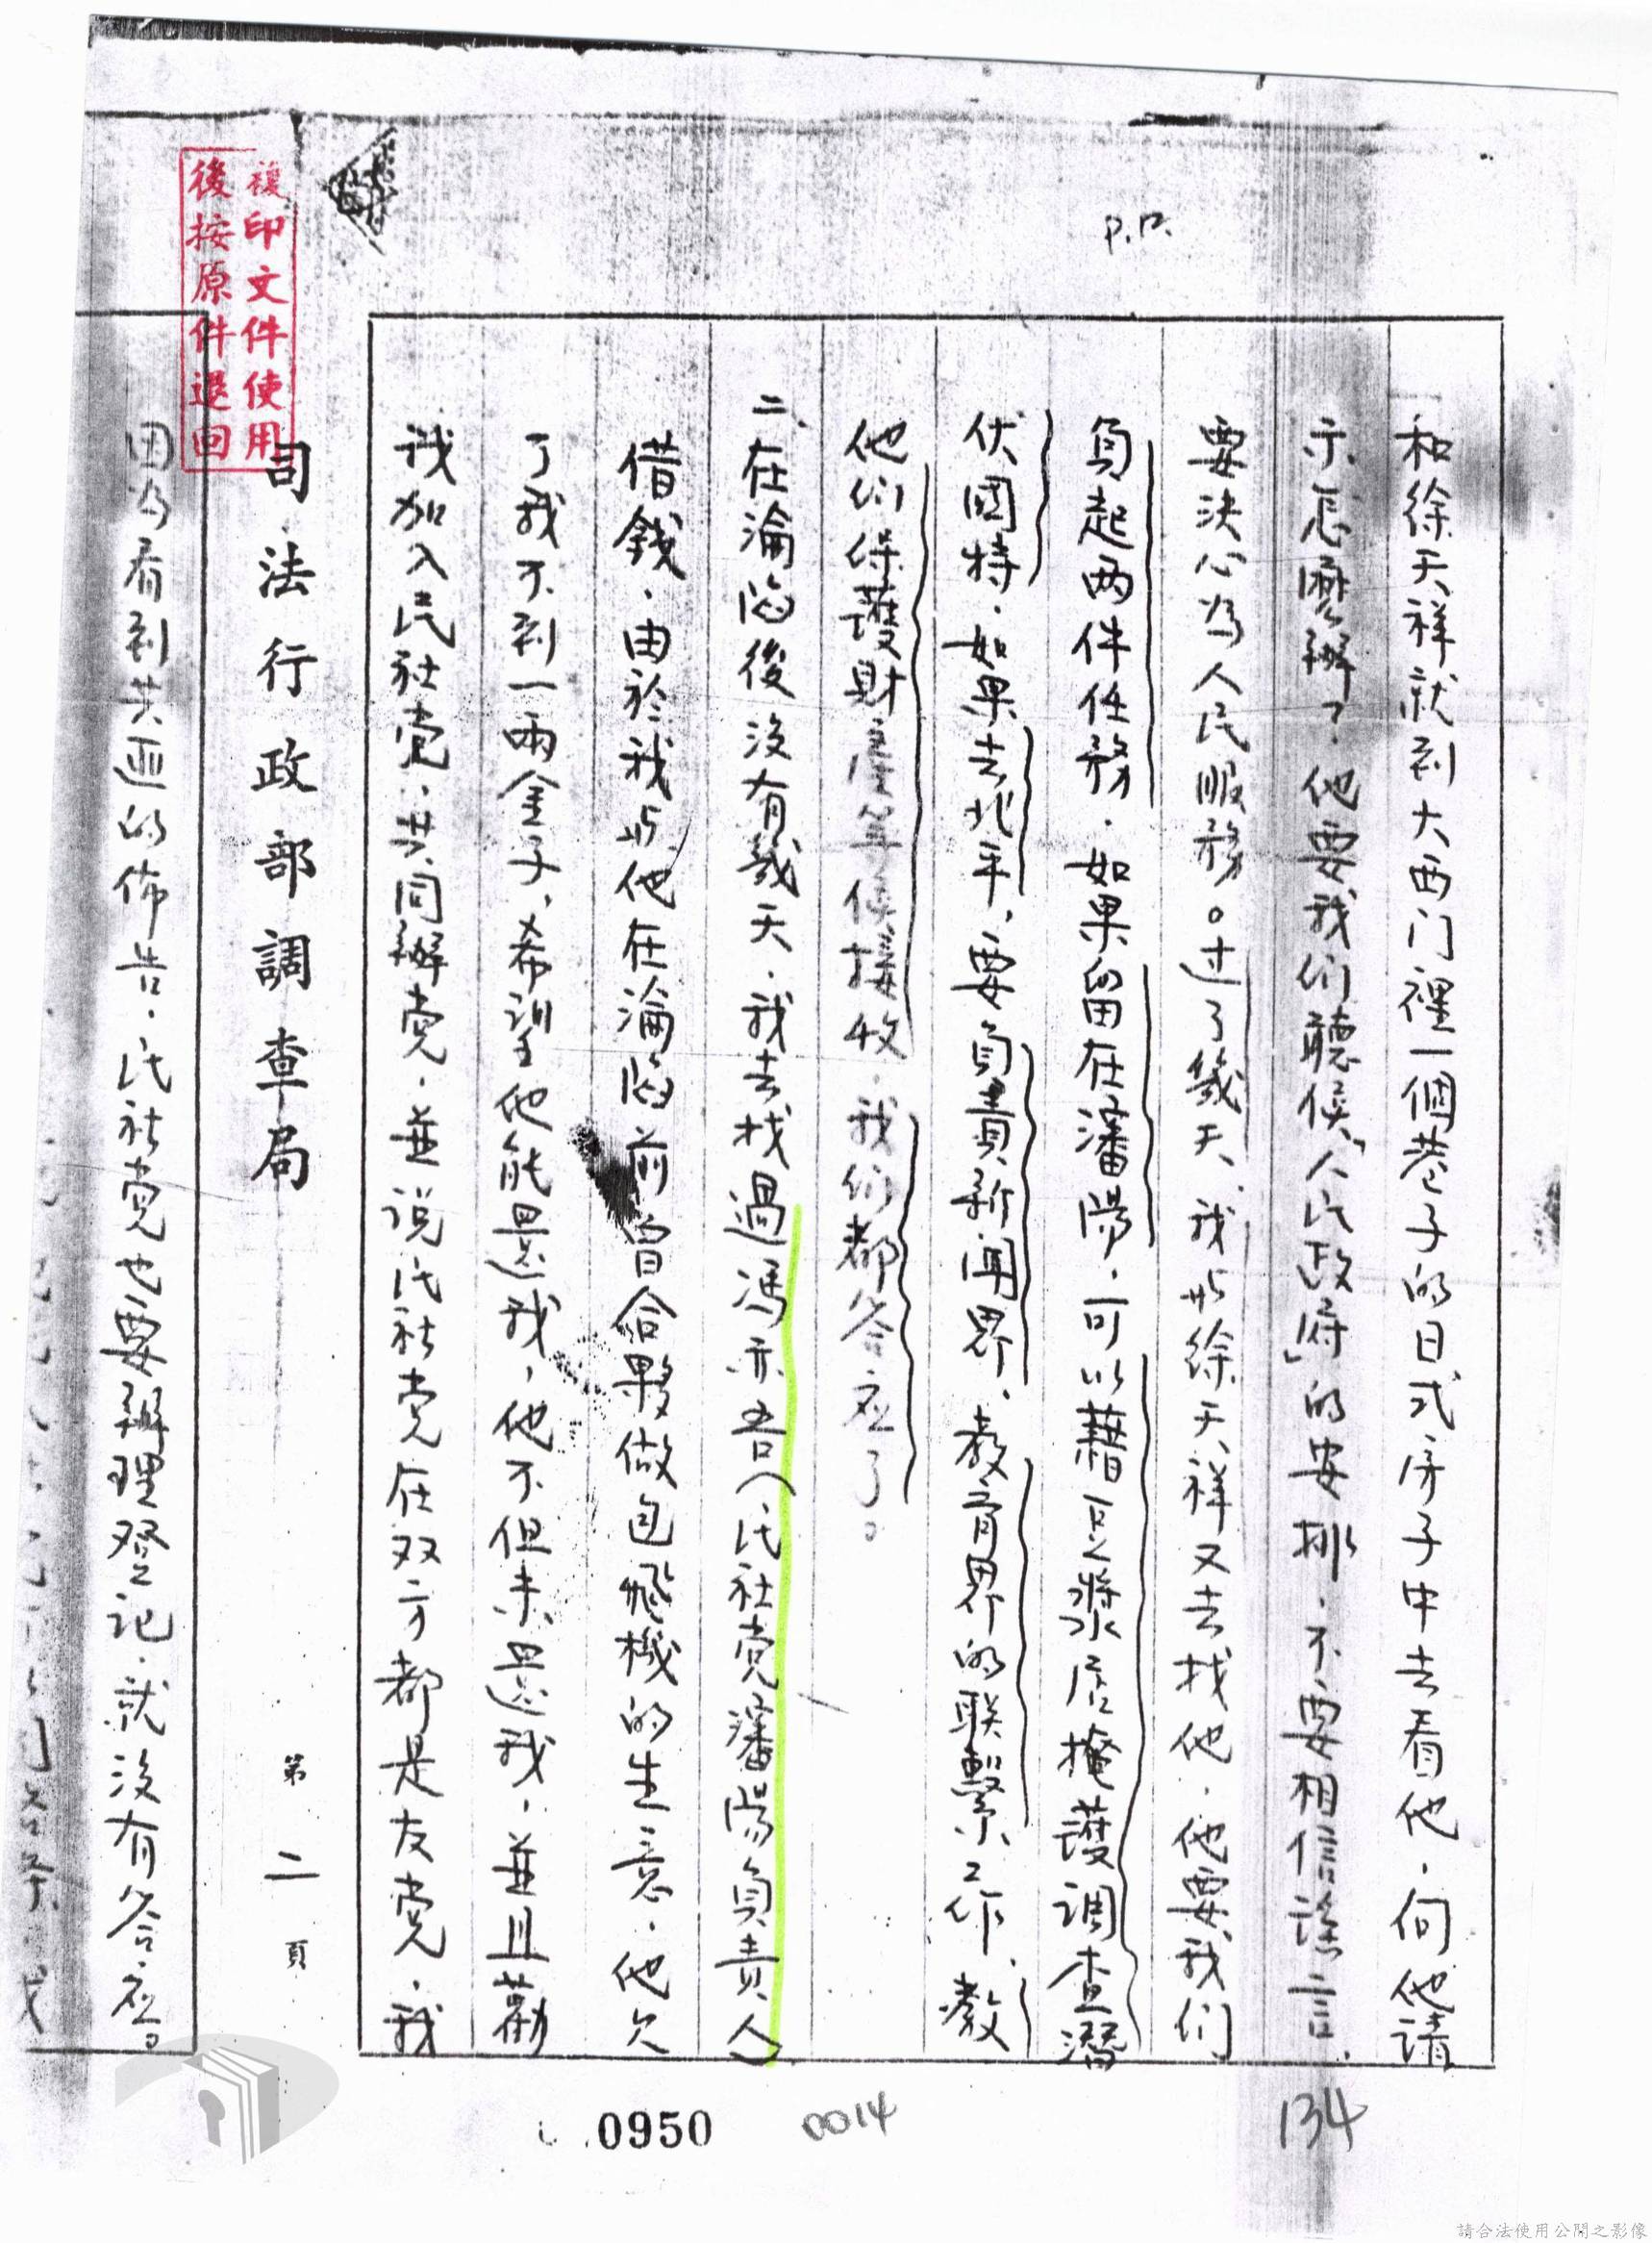 P.P.
和徐天祥就到大西门裡一個巷子的日式房子中去看他，向他請
示怎麼辦？他要我们聽候「人民政府」的安排，不要相信謠言，
要決心為人民服務。过了幾天，我与徐天祥又去找他，他要我们
負起两件任務，如果留在瀋陽，可以藉豆漿店掩護調查潛
伏國特，如果去北平，要負責新闻界、教育界的联繫工作，教
他们保護財產等候接收，我们都答应了。
二、在淪陷後沒有幾天，我去找過馮亦吾（民社党瀋陽負責人）
借錢，由於我与他在淪陷前曾合夥做包飛機的生意，他欠
了我不到一兩金子，希望他能還我，他不但未還我，並且勸
我加入民社党，共同辦党，並说民社党在双方都是友党，我
司法行政部調查局
第二頁
因为看到共匪的佈告，民社党也要辦理登记，就沒有答应。
複印文件使用
後按原件退回
0950
0014
134
請合法使用公開之影像